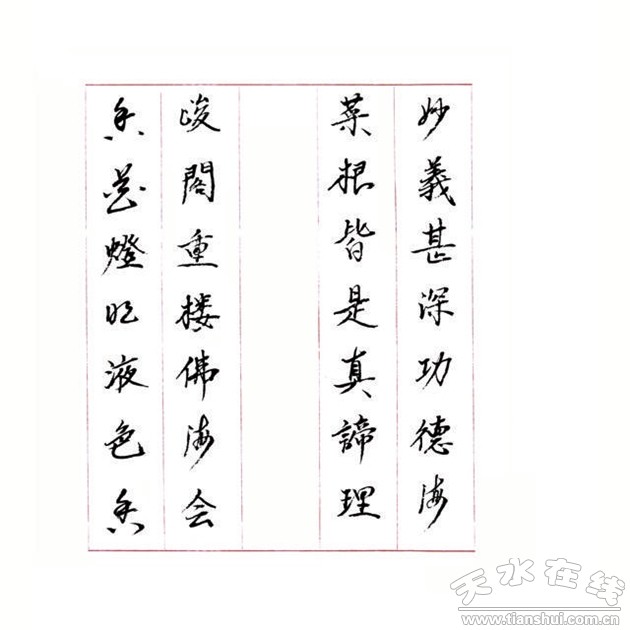 妙義甚深功德海
菜根皆是真諦理
峻閣重楼佛海会
香花燈液色香
天水在线
www.tianshui.com.cn